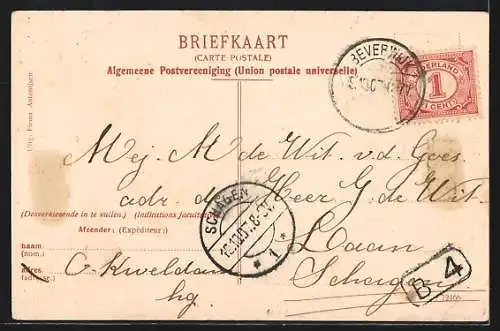 BRIEFKAART
(CARTE POSTALE)
Algemeene Postvereeniging (Union postale universelle)
Uitg. Firma
BEVERWIJK
NEDERLAND
1
CENT
Mej. M de Wit. v.d. Goes.
adr. de Heer G de Wit.
SCHAGEN
1
(Desverkiezende in te vullen.) (Indications facultatives)
Afzender: (Expéditeur:)
naam:
(nom.)
adres:
(adresse.)
Laan
Schagen
hg.
B 4